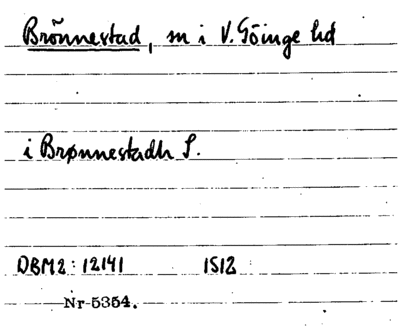 Brönnestad, sn i V. Göinge hd
i Brønnestadh S.
DBM2: 12141 1512
Nr 5354.